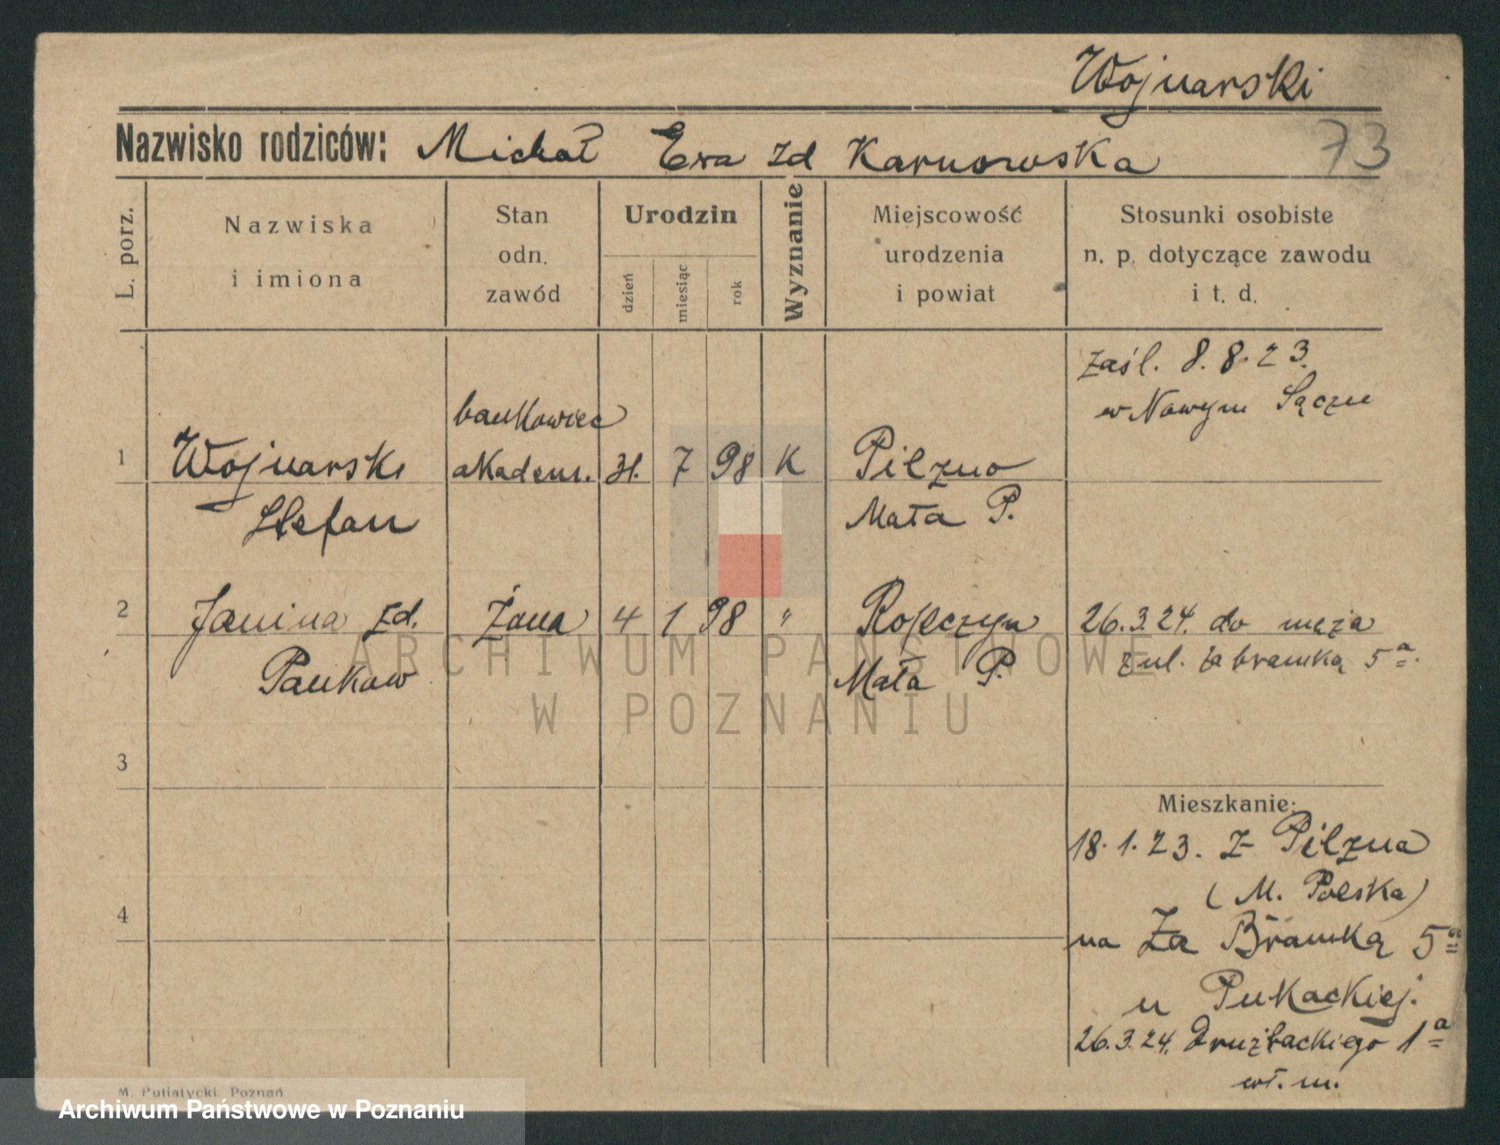 Wojnarski
Nazwisko rodziców: Michał Ewa zd Karnowska
73
L. porz.
Nazwiska
i imiona
Stan
odn.
zawód
Urodzin
dzień
miesiąc
rok
Wyznanie
Miejscowość
urodzenia
i powiat
Stosunki osobiste
n. p. dotyczące zawodu
i t. d.
zaśl. 8.8.23.
w Nowym Sączu
bankowiec
1 Wojnarski akadem. 31. 7 98 K Pilzno
Stefan Mała P.
2 Janina zd. Żona 4 1 98 " Ropczyn 26.3.24. do męża
Pankow Mała P. z ul. Za bramką 5a.
ARCHIWUM PAŃSTWOWE
W POZNANIU
3
Mieszkanie:
18.1.23. z Pilzna
(M. Polska)
4
na Za Bramką 5a
u Pukackiej.
26.3.24. Drużbackiego 1a
wł. m.
M. Putiatycki, Poznań
Archiwum Państwowe w Poznaniu